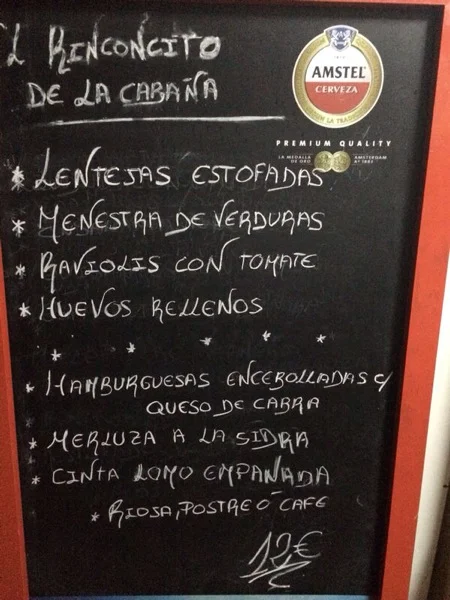 L RINCONCITO
DE LA CABAÑA
AMSTEL
CERVEZA
PREMIUM QUALITY
LA MEDALLA DE ORO
AMSTERDAM Aº 1883
* LENTEJAS ESTOFADAS
* MENESTRA DE VERDURAS
* RAVIOLIS CON TOMATE
* HUEVOS RELLENOS
* * * * *
* HAMBURGUESAS ENCEBOLLADAS C/
QUESO DE CABRA
* MERLUZA A LA SIDRA
* CINTA LOMO EMPANADA
* RIOJA, POSTRE Ó CAFE
12€